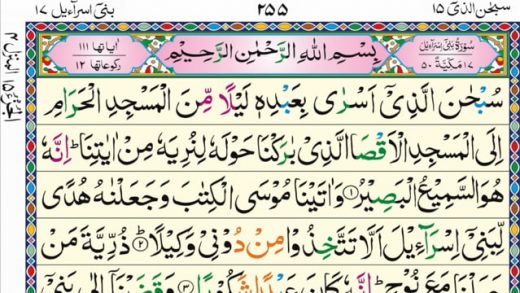 سبحٰن الذی ١٥
٢٥٥
بنیٓ اسرآءیل ١٧
سُوْرَةُ بَنِیْٓ اِسْرَآءِیْلَ
١٧ مَکِّیَّةٌ ٥٠
بِسْمِ اللّٰهِ الرَّحْمٰنِ الرَّحِیْمِ
اٰیاتها ١١١
رکوعاتها ١٢
سُبْحٰنَ الَّذِیْۤ اَسْرٰی بِعَبْدِهٖ لَیْلًا مِّنَ الْمَسْجِدِ الْحَرَامِ
اِلَی الْمَسْجِدِ الْاَقْصَا الَّذِیْ بٰرَکْنَا حَوْلَهٗ لِنُرِیَهٗ مِنْ اٰیٰتِنَا ؕ اِنَّهٗ
هُوَ السَّمِیْعُ الْبَصِیْرُ ﴿١﴾ وَاٰتَیْنَا مُوْسَی الْکِتٰبَ وَجَعَلْنٰهُ هُدًی
لِّبَنِیْۤ اِسْرَآءِیْلَ اَلَّا تَتَّخِذُوْا مِنْ دُوْنِیْ وَکِیْلًا ؕ ﴿٢﴾ ذُرِّیَّةَ مَنْ
حَمَلْنَا مَعَ نُوْحٍ ؕ اِنَّهٗ کَانَ عَبْدًا شَکُوْرًا ﴿٣﴾ وَقَضَیْنَاۤ اِلٰی بَنِیْۤ